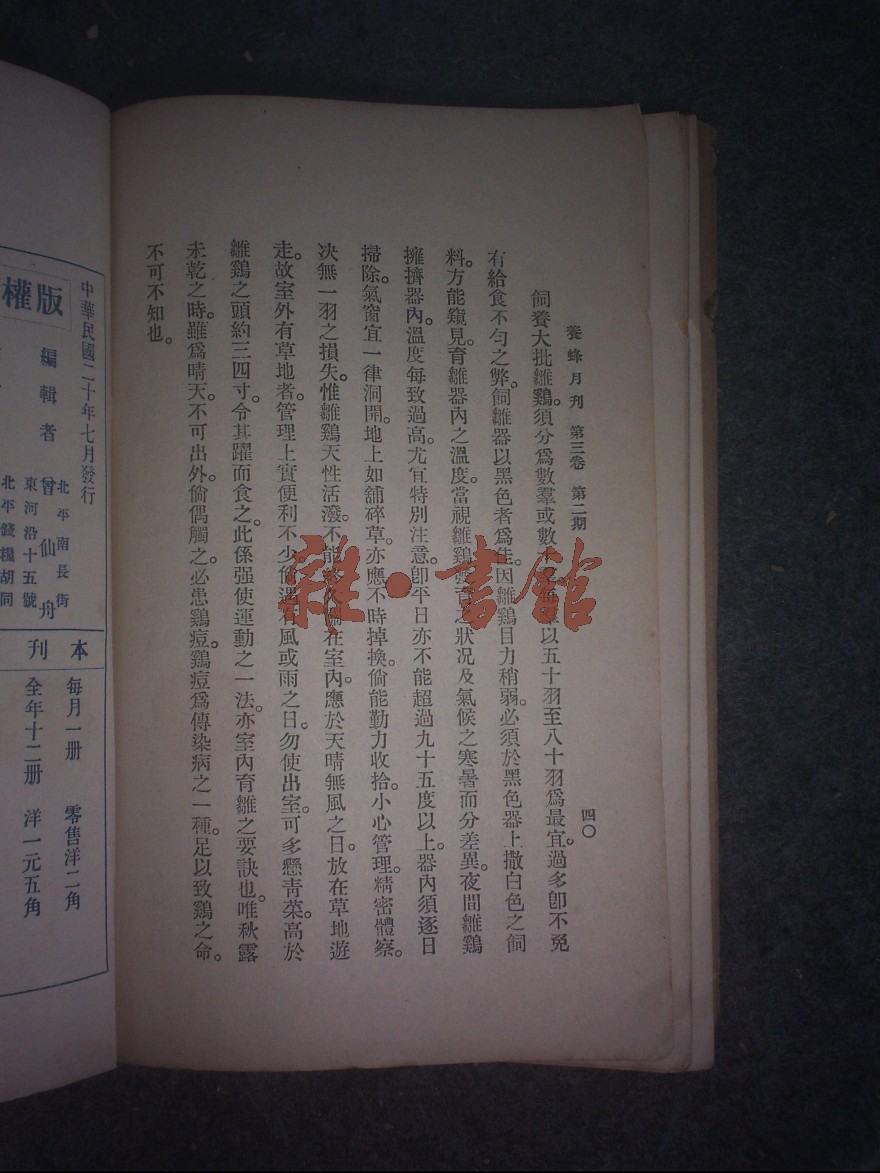 養蜂月刊 第三卷 第二期
四〇
飼養大批雛鷄。須分爲數羣或數十羣每羣以五十羽至八十羽爲最宜。過多卽不免
有給食不勻之弊。飼雛器以黑色者爲佳。因雛鷄目力稍弱。必須於黑色器上撒白色之飼
料。方能窺見。育雛器內之溫度。當視雛鷄發育之狀況及氣候之寒暑而分差異。夜間雛鷄
擁擠器內。溫度每致過高。尤宜特別注意。卽平日亦不能超過九十五度以上。器內須逐日
掃除。氣窗宜一律洞開。地上如舖碎草。亦應不時掉換。倘能勤力收拾。小心管理。精密體察。
决無一羽之損失。惟雛鷄天性活潑。不能 在室內。應於天晴無風之日。放在草地遊
走。故室外有草地者。管理上實便利不少。倘遇有風或雨之日。勿使出室。可多懸青菜。高於
雛鷄之頭約三四寸。令其躍而食之。此係强使運動之一法。亦室內育雛之要訣也。唯秋露
未乾之時。雖爲晴天。不可出外。倘偶觸之。必患鷄痘。鷄痘爲傳染病之一種。足以致鷄之命。
不可不知也。
雜·書館
中華民國二十年七月發行
版權
編輯者 曾仙舟
北平南長街
東河沿十五號
北平錢糧胡同
本刊
每月一册 零售洋二角
全年十二册 洋一元五角